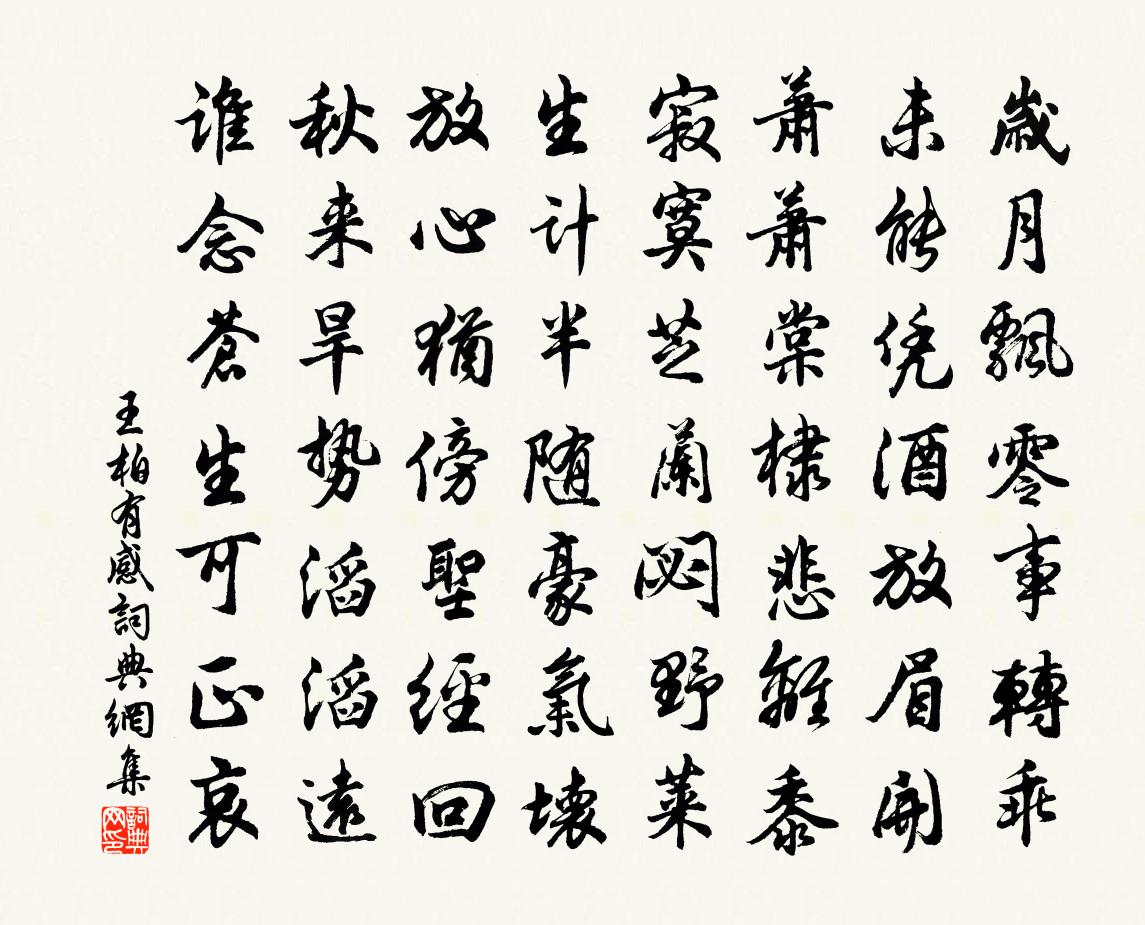 歲月飄零事轉乖
未能凭酒放眉開
蕭蕭棠棣悲離黍
寂寞芝蘭閟野萊
生計半随豪氣壞
放心猶傍聖經回
秋来旱勢滔滔遠
誰念蒼生可正哀
王柏有感詞典網集
詞典网印